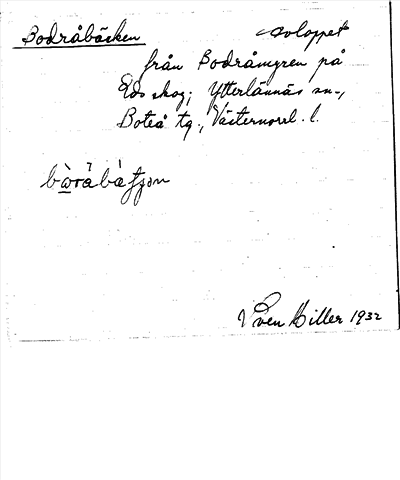 Bodråbäcken avloppet
från Bodråmyren på
Eds skog; Ytterlännäs sn.,
Boteå tg., Västernorrl. l.
Sven Hiller 1932